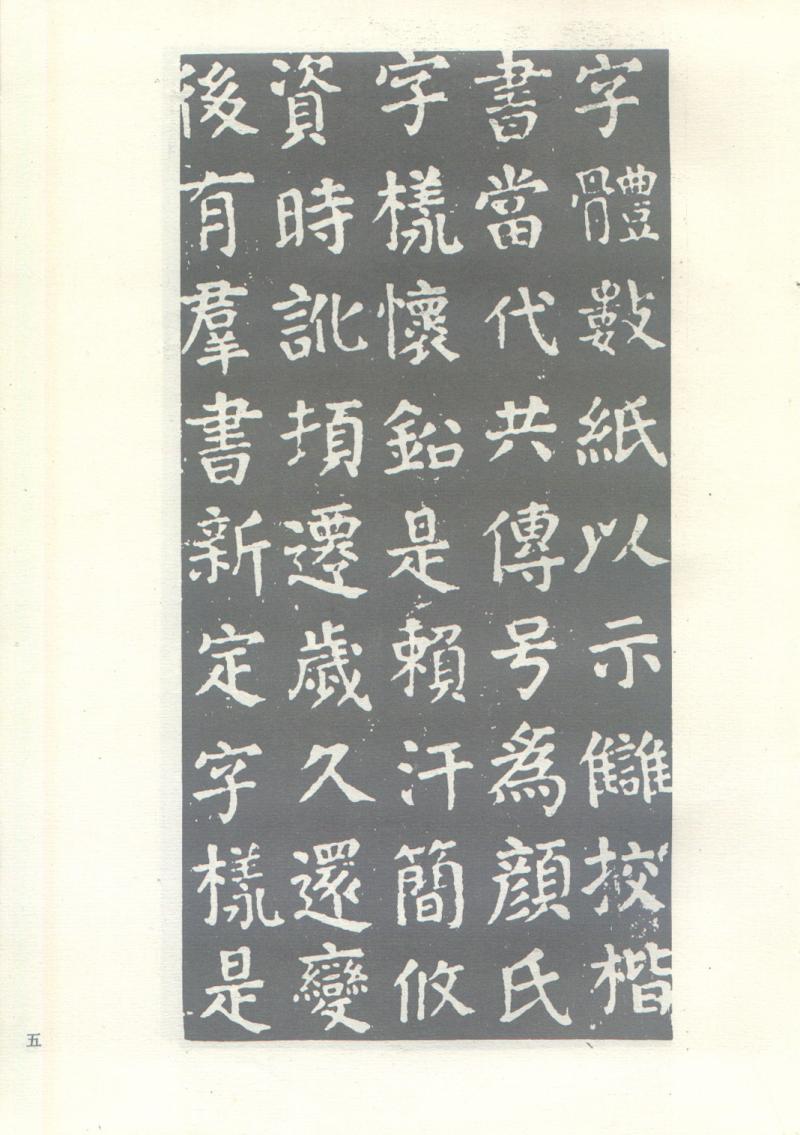 字體數紙以示讎挍楷
書當代共傳号為顔氏
字樣懷鉛是賴汗簡攸
資時訛頃遷歲久還變
後有羣書新定字樣是
五